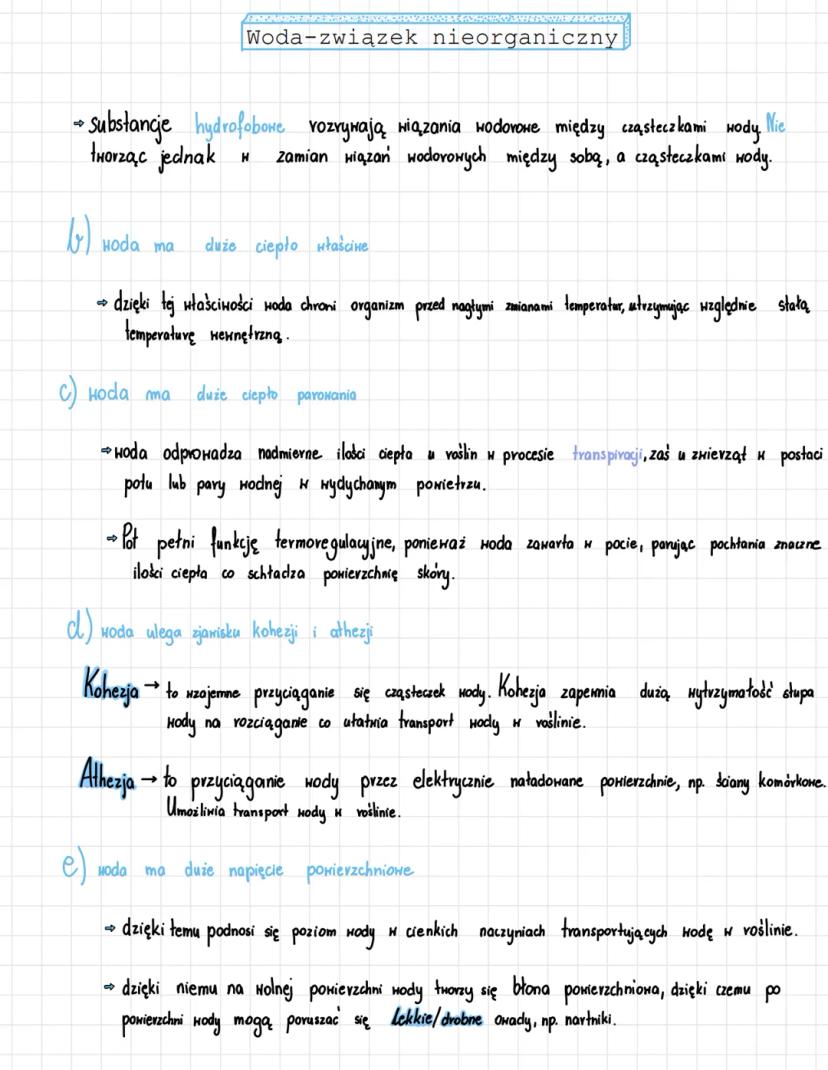 Woda-związek nieorganiczny
⇒ substancje hydrofobowe rozrywają wiązania wodorowe między cząsteczkami wody. Nie
tworząc jednak w zamian wiązań wodorowych między sobą, a cząsteczkami wody.
b) woda ma duże ciepło właściwe
⇒ dzięki tej właściwości woda chroni organizm przed nagłymi zmianami temperatur, utrzymując względnie stałą
temperaturę wewnętrzną.
c) woda ma duże ciepło parowania
⇒ woda odprowadza nadmierne ilości ciepła u roślin w procesie transpiracji, zaś u zwierząt w postaci
potu lub pary wodnej w wydychanym powietrzu.
⇒ Pot pełni funkcję termoregulacyjne, ponieważ woda zawarta w pocie, parując pochłania znaczne
ilości ciepła co schładza powierzchnię skóry.
d) woda ulega zjawisku kohezji i athezji
Kohezja → to wzajemne przyciąganie się cząsteczek wody. Kohezja zapewnia dużą wytrzymałość słupa
wody na rozciąganie co ułatwia transport wody w roślinie.
Athezja → to przyciąganie wody przez elektrycznie naładowane powierzchnie, np. ściany komórkowe.
Umożliwia transport wody w roślinie.
e) woda ma duże napięcie powierzchniowe
⇒ dzięki temu podnosi się poziom wody w cienkich naczyniach transportujących wodę w roślinie.
⇒ dzięki niemu na wolnej powierzchni wody tworzy się błona powierzchniowa, dzięki czemu po
powierzchni wody mogą poruszać się lekkie/drobne owady, np. nartniki.